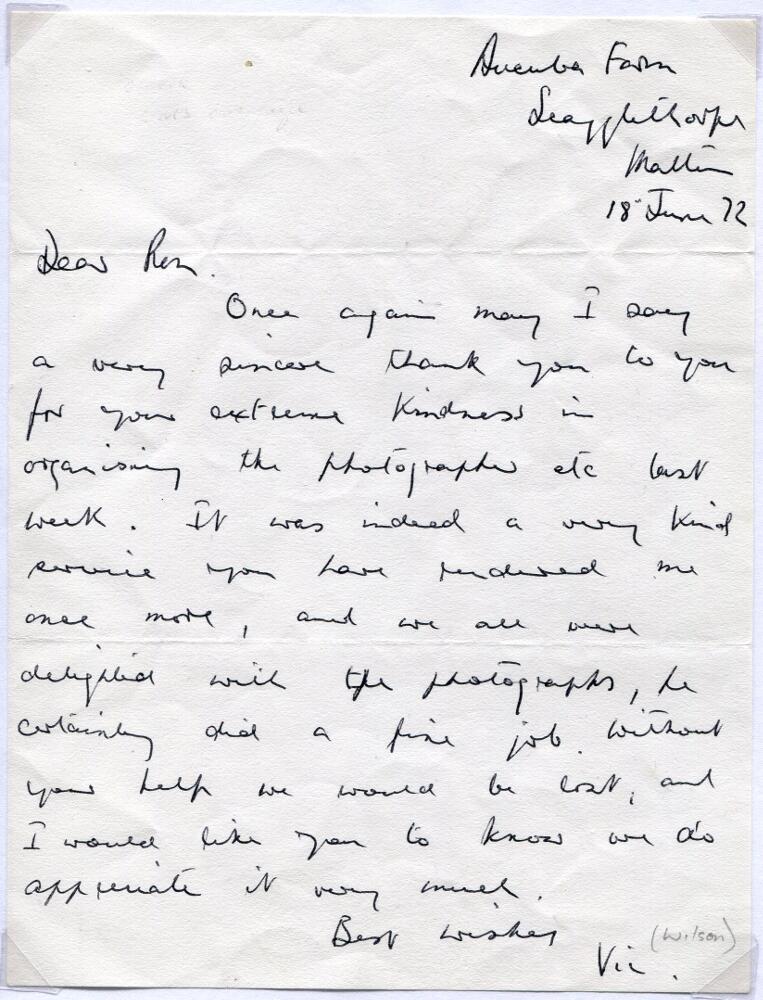 Aucuba Farm
Scagglethorpe
Malton
18 June 72
Dear Ron.
Once again may I say
a very sincere thank you to you
for your extreme kindness in
organising the photographer etc last
week. It was indeed a very kind
service you have rendered me
once more, and we all were
delighted with the photographs, he
certainly did a fine job. Without
your help we would be lost, and
I would like you to know we do
appreciate it very much.
Best wishes
(Wilson)
Vic.